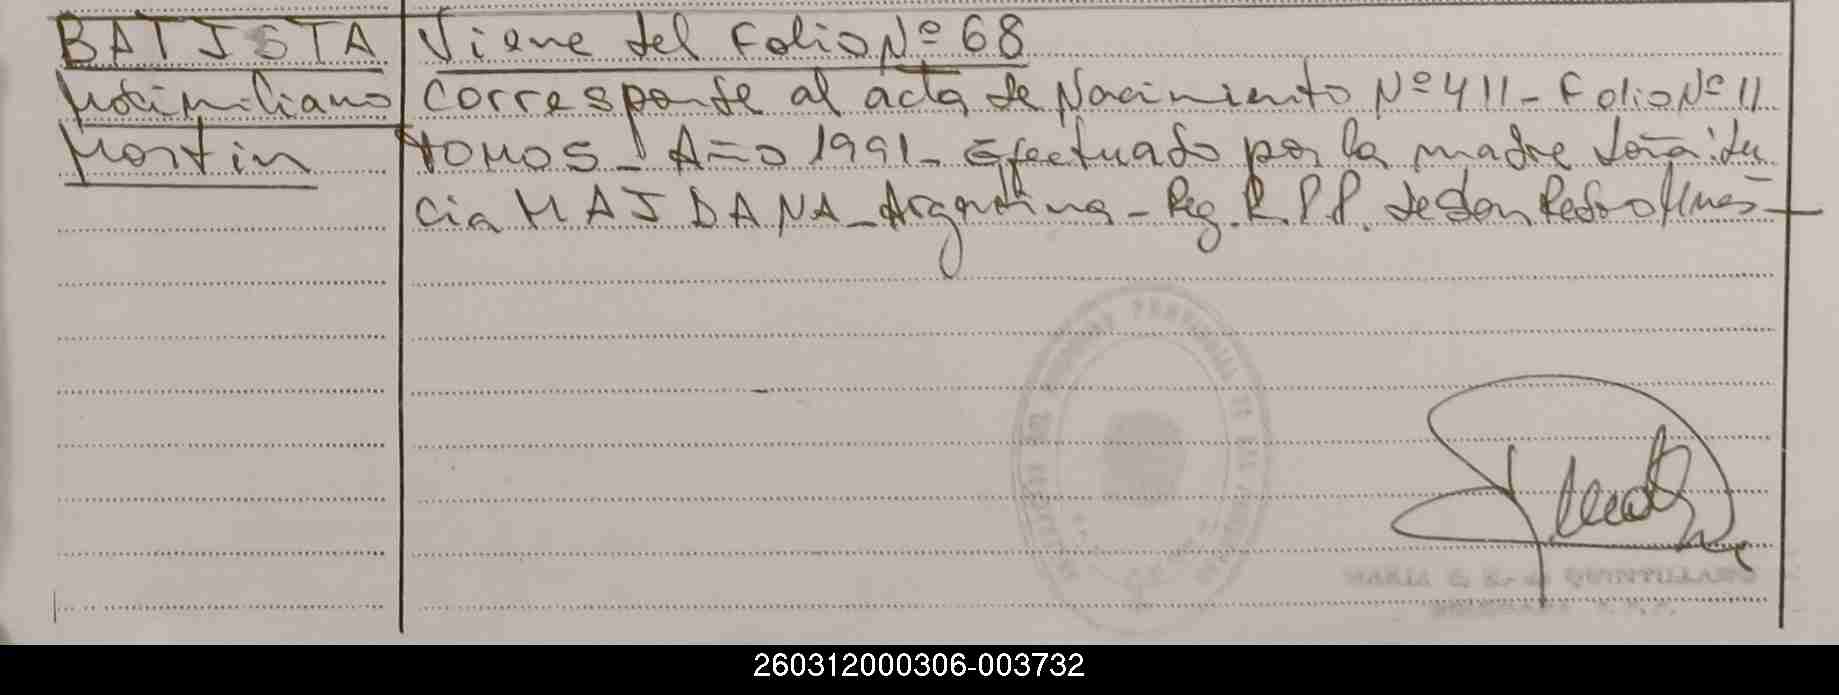 BATISTA
Maximiliano
Martin
Viene del Folio Nº 68
Corresponde al acta de Nacimiento Nº 411 - Folio Nº 11
Año 1991 - Efectuado por la madre
cia MAIDANA - Argentina - Reg. R.P.P. de San Pedro
QUINTILLANO
260312000306-003732